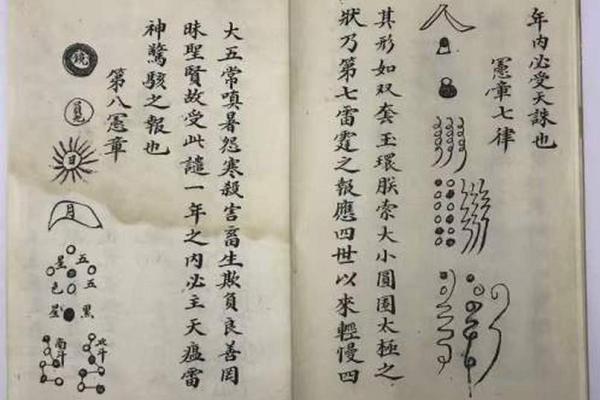 年內必受天誅也
憲章七律
其形如双套玉環朕索大小圓圈太極之
狀乃第七雷霆之報應四世以來輕慢四
大五常嗔暑怨寒殺害畜生欺負良善罔
昧聖賢故受此譴一年之內必主天瘟雷
神驚駭之報也
第八憲章
鏡
日
月
五黑
五
星色星
北斗
南斗